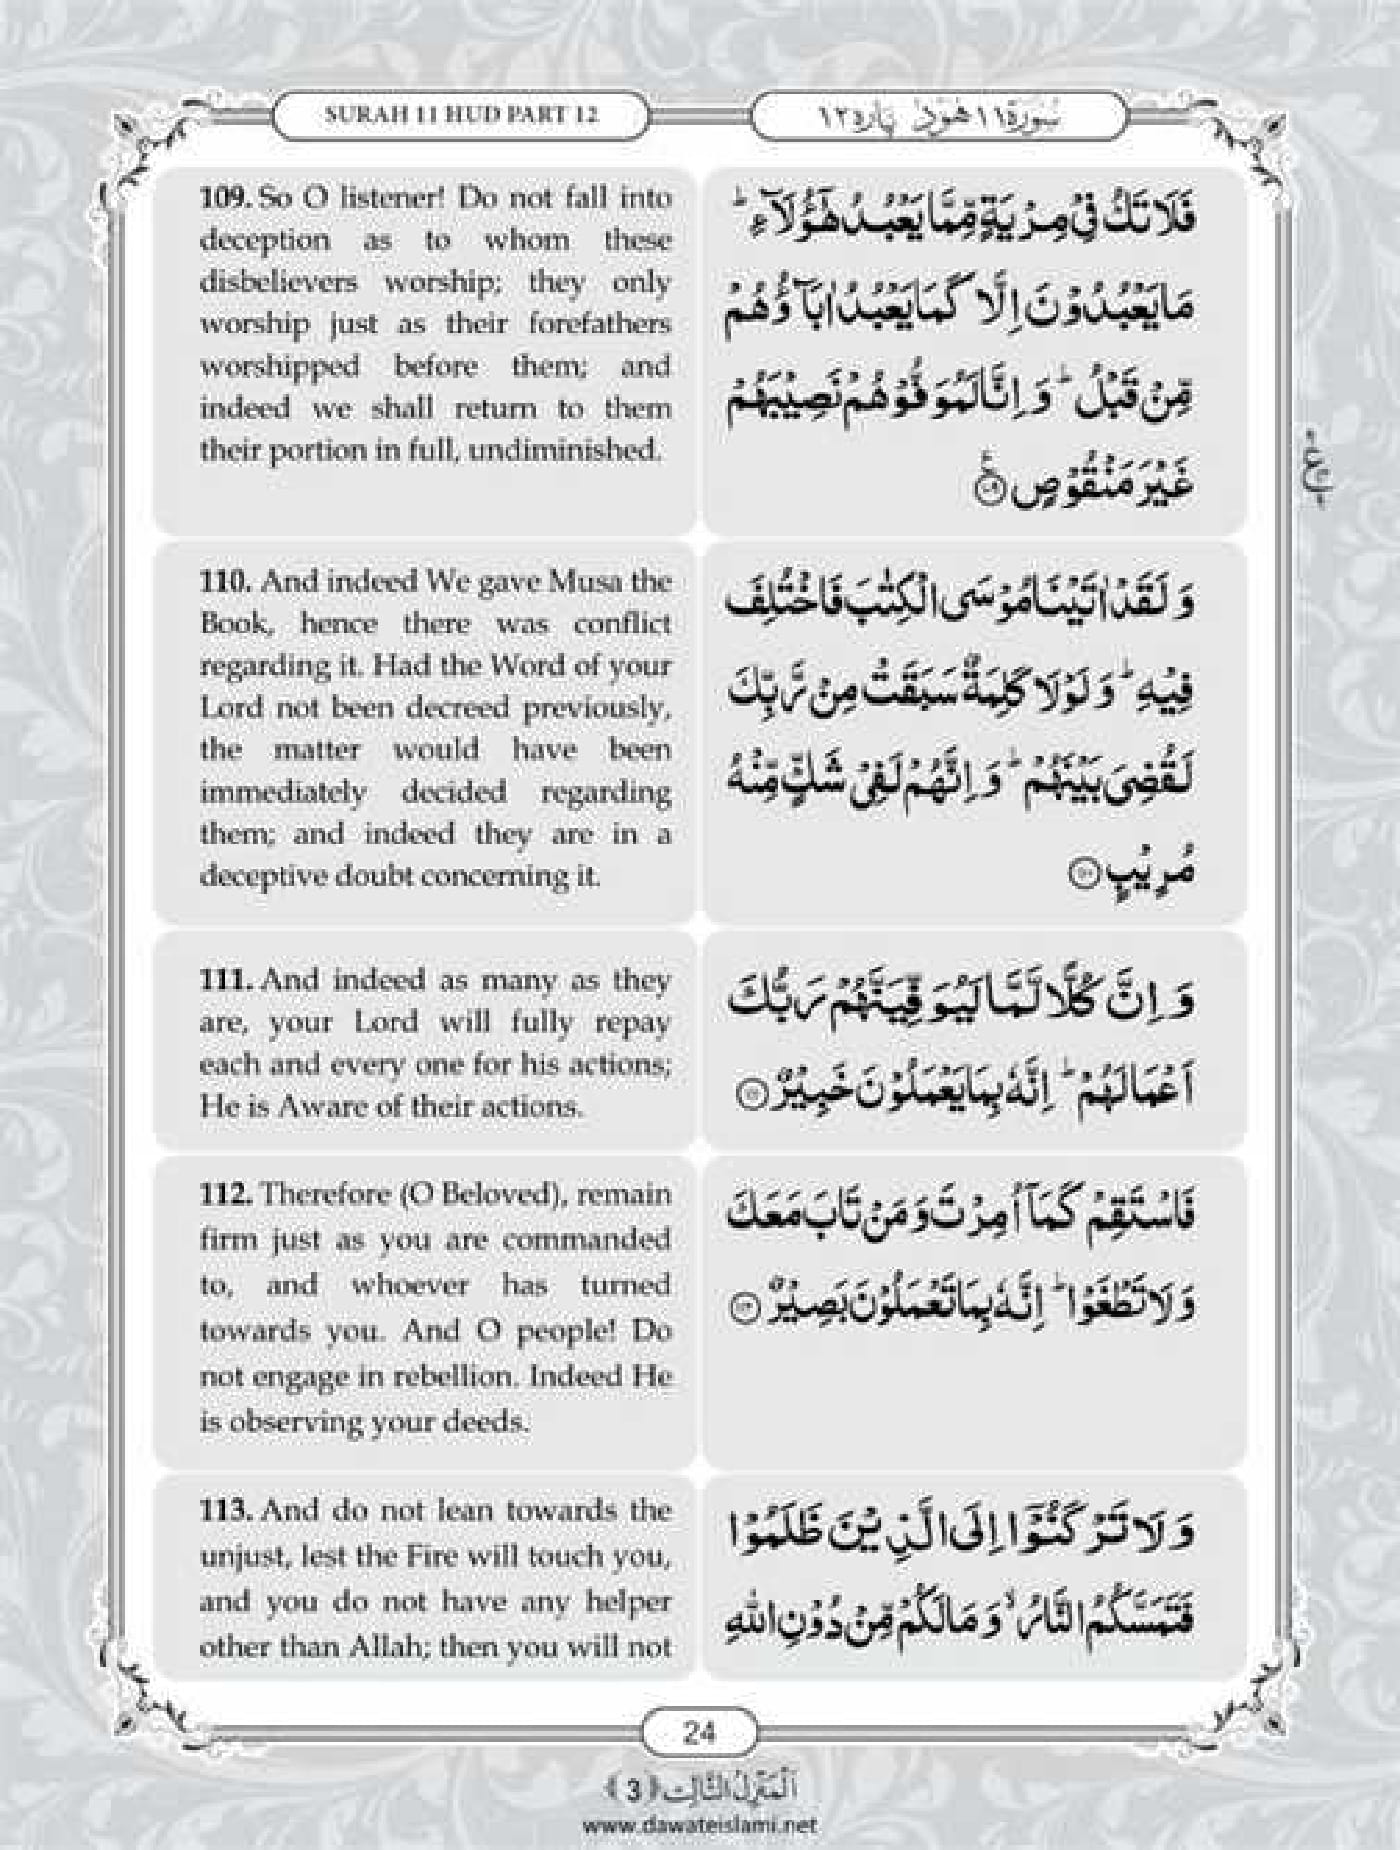 SURAH 11 HUD PART 12
سُوْرَة ١١ هُوْد پارہ ١٢
109. So O listener! Do not fall into
deception as to whom these
disbelievers worship; they only
worship just as their forefathers
worshipped before them; and
indeed we shall return to them
their portion in full, undiminished.
فَلَا تَكُ فِیْ مِرْیَةٍ مِّمَّا یَعْبُدُ هٰۤؤُلَآءِ ؕ
مَا یَعْبُدُوْنَ اِلَّا كَمَا یَعْبُدُ اٰبَآؤُهُمْ
مِّنْ قَبْلُ ؕ وَ اِنَّا لَمُوَفُّوْهُمْ نَصِیْبَهُمْ
غَیْرَ مَنْقُوْصٍ ۠﴿۱۰۹﴾
110. And indeed We gave Musa the
Book, hence there was conflict
regarding it. Had the Word of your
Lord not been decreed previously,
the matter would have been
immediately decided regarding
them; and indeed they are in a
deceptive doubt concerning it.
وَ لَقَدْ اٰتَیْنَا مُوْسَی الْكِتٰبَ فَاخْتُلِفَ
فِیْهِ ؕ وَ لَوْلَا كَلِمَةٌ سَبَقَتْ مِنْ رَّبِّكَ
لَقُضِیَ بَیْنَهُمْ ؕ وَ اِنَّهُمْ لَفِیْ شَكٍّ مِّنْهُ
مُرِیْبٍ ﴿۱۱۰﴾
111. And indeed as many as they
are, your Lord will fully repay
each and every one for his actions;
He is Aware of their actions.
وَ اِنَّ كُلًّا لَّمَّا لَیُوَفِّیَنَّهُمْ رَبُّكَ
اَعْمَالَهُمْ ؕ اِنَّهٗ بِمَا یَعْمَلُوْنَ خَبِیْرٌ ﴿۱۱۱﴾
112. Therefore (O Beloved), remain
firm just as you are commanded
to, and whoever has turned
towards you. And O people! Do
not engage in rebellion. Indeed He
is observing your deeds.
فَاسْتَقِمْ كَمَاۤ اُمِرْتَ وَ مَنْ تَابَ مَعَكَ
وَ لَا تَطْغَوْا ؕ اِنَّهٗ بِمَا تَعْمَلُوْنَ بَصِیْرٌ ﴿۱۱۲﴾
113. And do not lean towards the
unjust, lest the Fire will touch you,
and you do not have any helper
other than Allah; then you will not
وَ لَا تَرْكَنُوْۤا اِلَی الَّذِیْنَ ظَلَمُوْا
فَتَمَسَّكُمُ النَّارُ ۙ وَ مَا لَكُمْ مِّنْ دُوْنِ اللّٰهِ
24
اَلْمَنْزِلُ الثَّالِث ﴿3﴾
www.dawateislami.net